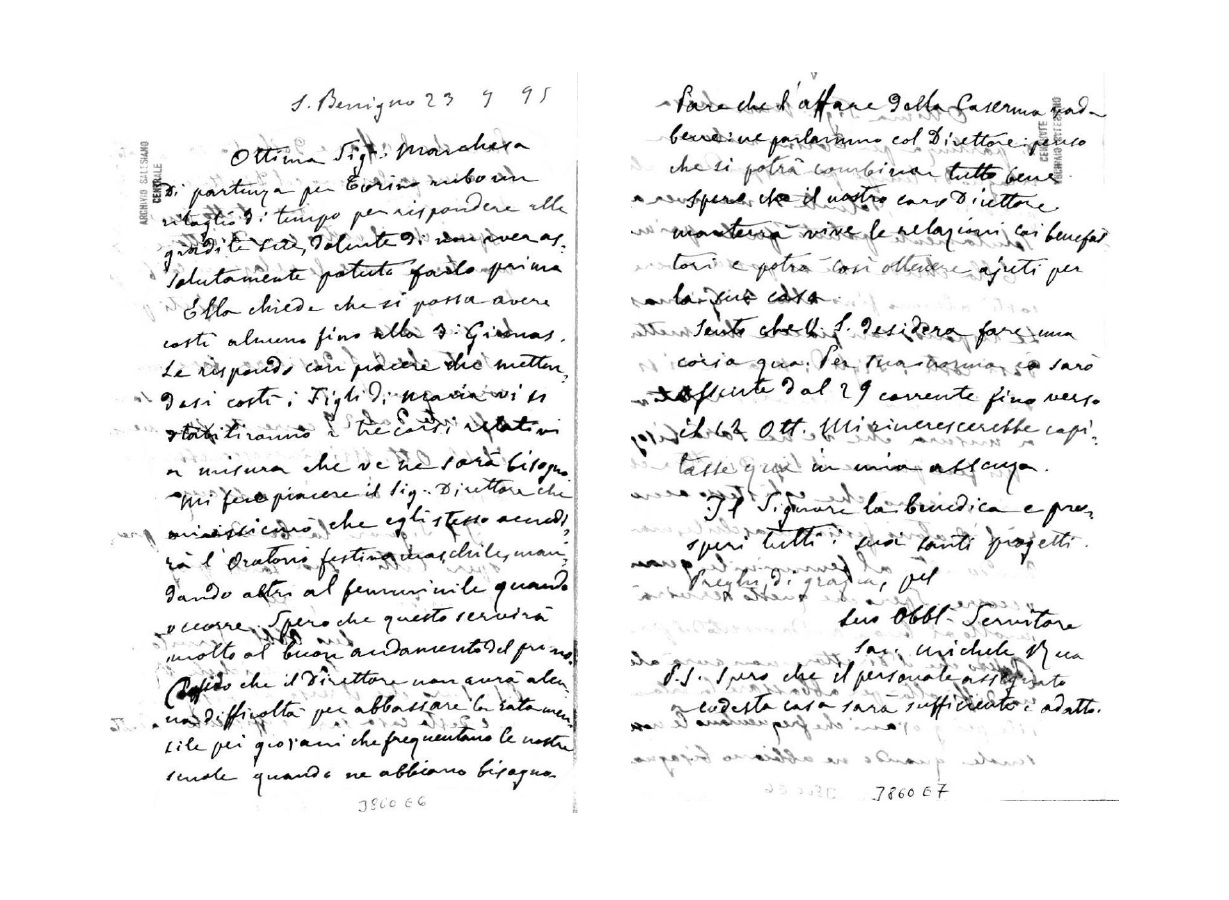 S. Benigno 23 9 95
ARCHIVIO SALESIANO
CENTRALE
Ottima Sig.ª Marchesa
Di partenza per Torino rubo un
ritaglio di tempo per rispondere alle
gradite sue, dolente di non aver as-
solutamente potuto farlo prima
Ella chiede che si possa avere
costì almeno fino alla 3ª Ginnas.
Le rispondo con piacere che metten-
dosi costì i Figli di Maria vi si
stabiliranno i tre corsi relativi
a misura che ve ne sarà bisogno
Mi fece piacere il Sig. Direttore che
mi assicurò che egli stesso accudi-
rà l'Oratorio festivo maschile, man-
dando altri al femminile quando
occorre. Spero che questo servirà
molto al buon andamento del primo.
Credo che il Direttore non avrà alcu-
na difficoltà per abbassare la rata men-
sile pei giovani che frequentano le nostre
scuole quando ne abbiano bisogno
3860 E6
Pare che l'affare della Caserma vada
bene: ne parlammo col Direttore: penso
che si potrà combinar tutto bene.
Spero che il nostro caro Direttore
manterrà vive le relazioni coi benefat-
tori e potrà così ottenere ajuti per
la sua casa
Sento che V. S. desidera fare una
corsa qua. Per sua norma io sarò
assente dal 29 corrente fino verso
il 12 Ott. Mi rincrescerebbe capi-
tasse qui in mia assenza.
Il Signore la benedica e pro-
speri tutti i suoi santi progetti.
Preghi, di grazia, pel
Suo Obbl. Servitore
Sac. Michele Rua
P.S. Spero che il personale assegnato
a codesta casa sarà sufficiente e adatto.
ARCHIVIO SALESIANO
CENTRALE
3860 E7